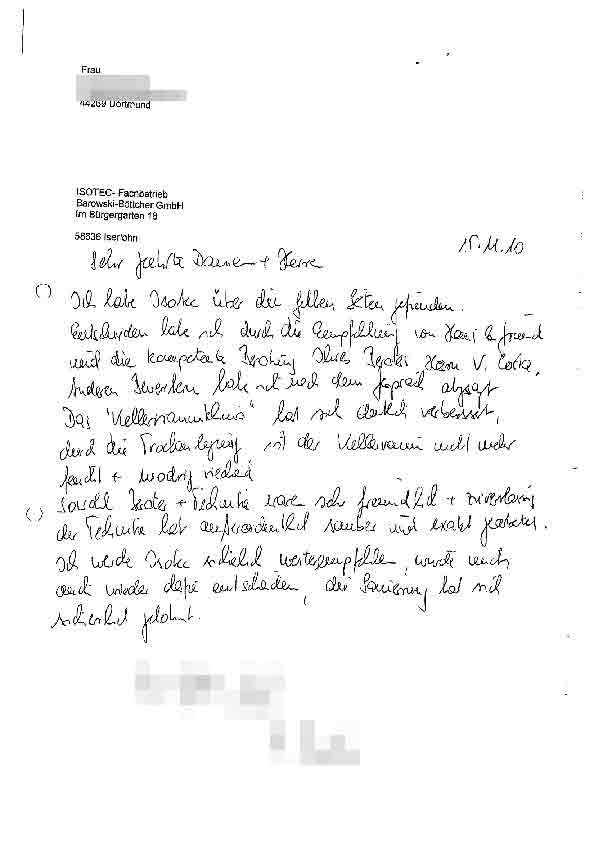 Frau
44269 Dortmund
ISOTEC- Fachbetrieb
Barowski-Böttcher GmbH
Im Bürgergarten 18
58636 Iserlohn
15.11.10
Sehr geehrte Damen + Herren
Ich habe Isotec über die gelben Seiten gefunden.
Entschieden habe ich durch die Empfehlung von Haus &
und die kompetente Beratung Ihres Herrn V.
Anderen Bewerbern habe ich nach dem Gespräch abgesagt
Das "Kellerraumklima" hat sich deutlich verbessert,
durch die Trockenlegung ist der Kellerraum nicht mehr
feucht + modrig riechend
Sowohl + Techniker waren sehr freundlich + zuverlässig
der Techniker hat außerordentlich sauber und exakt gearbeitet.
Ich werde Isotec sicherlich weiterempfehlen, würde mich
auch wieder dafür entscheiden, die Sanierung hat sich
sicherlich gelohnt.